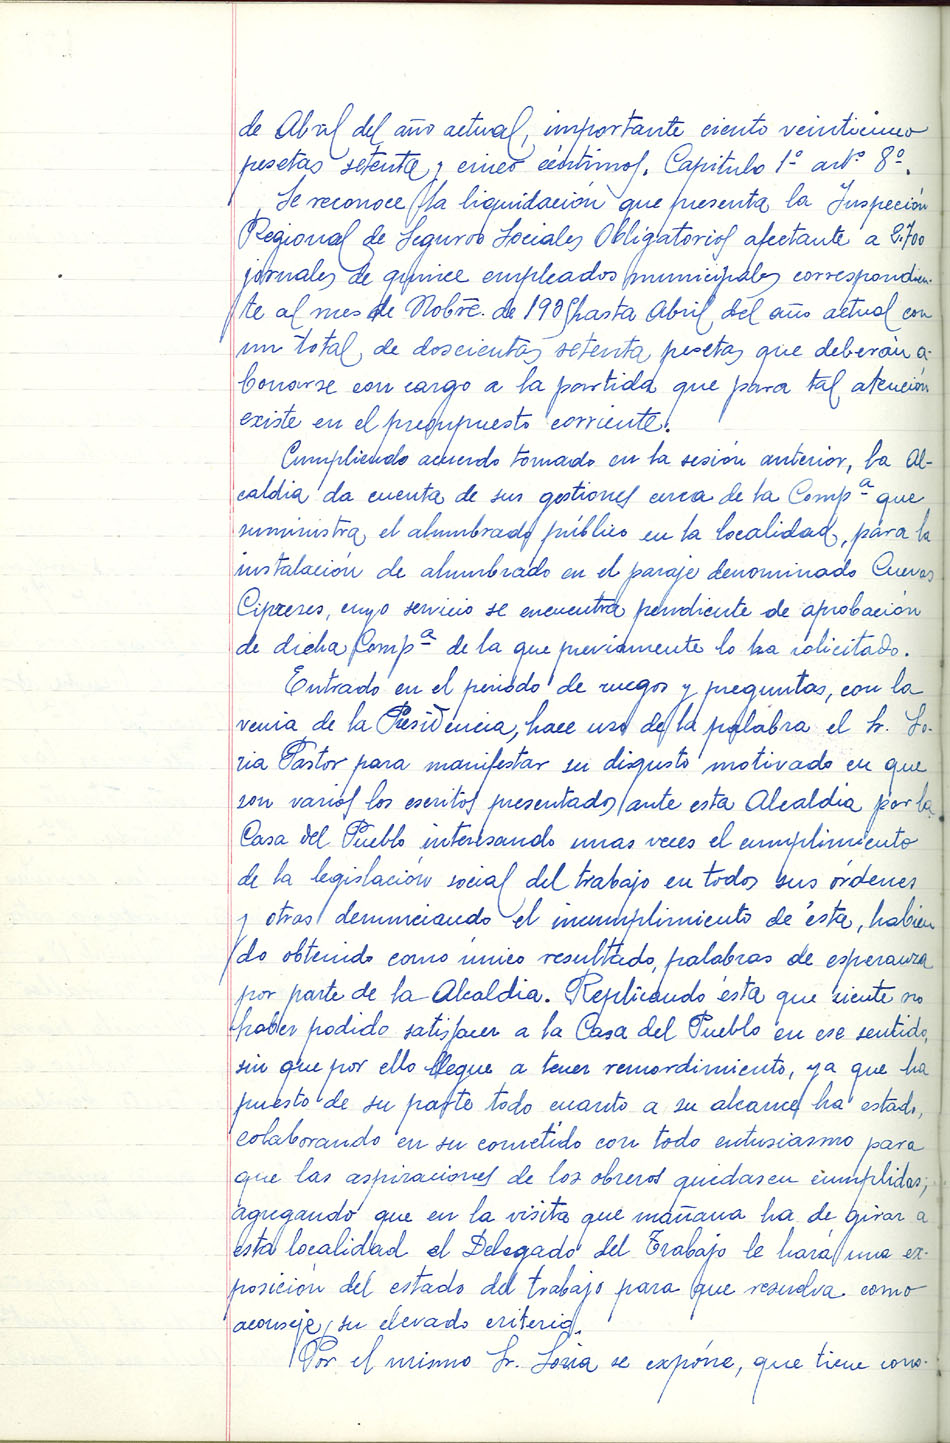 de Abril del año actual, importante ciento veinticinco
pesetas setenta y cinco céntimos. Capitulo 1º artº 8º.
Se reconoce la liquidación que presenta la Inspeción
Regional de Seguros Sociales Obligatorios afectante a 2.700
jornales de quince empleados municipales correspondien-
te al mes de Nobre. de hasta Abril del año actual con
un total, de doscientas setenta pesetas que deberán a-
bonarse con cargo a la partida que para tal atención
existe en el presupuesto corriente.
Cumpliendo acuerdo tomado en la sesión anterior, la Al-
caldia da cuenta de sus gestiones cerca de la Compª que
suministra el alumbrado público en la localidad, para la
instalación de alumbrado en el paraje denominado Cuevas
Cipreses, cuyo servicio se encuentra pendiente de aprobación
de dicha Compª de la que previamente lo ha solicitado.
Entrado en el periodo de ruegos y preguntas, con la
venia de la Presidencia, hace uso de la palabra el Sr. So-
ria Pastor para manifestar su disgusto motivado en que
son varios los escritos presentados ante esta Alcaldia por la
Casa del Pueblo interesando unas veces el cumplimiento
de la legislación social del trabajo en todos sus órdenes
y otras denunciando el incumplimiento de ésta, habien
do obtenido como único resultado, palabras de esperanza
por parte de la Alcaldia. Replicando ésta que siente no
haber podido satisfacer a la Casa del Pueblo en ese sentido,
sin que por ello llegue a tener remordimiento, ya que ha
puesto de su parte todo cuanto a su alcance ha estado,
colaborando en su cometido con todo entusiasmo para
que las aspiraciones de los obreros quedasen cumplidas;
agregando que en la visita que mañana ha de girar a
esta localidad el Delegado del Trabajo le hará una ex-
posición del estado del trabajo para que resuelva como
aconseje su elevado criterio.
Por el mismo Sr. Soria se expone, que tiene cono-